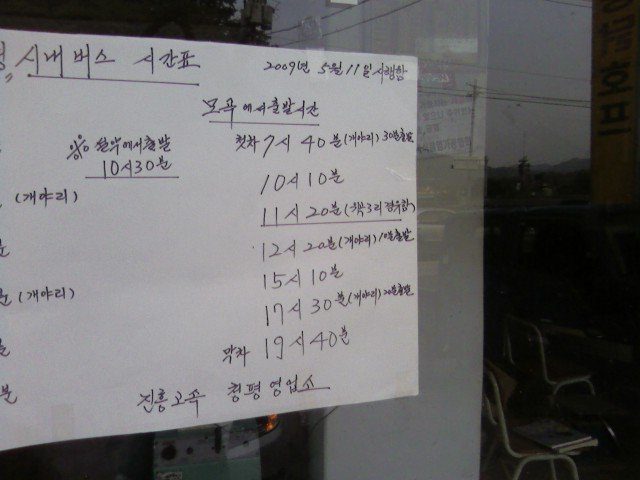 시내버스 시간표 2009년 5월 11일 시행함
모곡에서출발시간
※ 설악에서출발 첫차 7시 40분(개야리) 30분출발
10시30분
10시 10분
(개야리)
11시 20분( 3리경유함)
분 12시 20분(개야리) 10분출발
15시 10분
분 (개야리)
17시 30분(개야리) 20분출발
막차 19시 40분
분
진흥고속 청평영업소